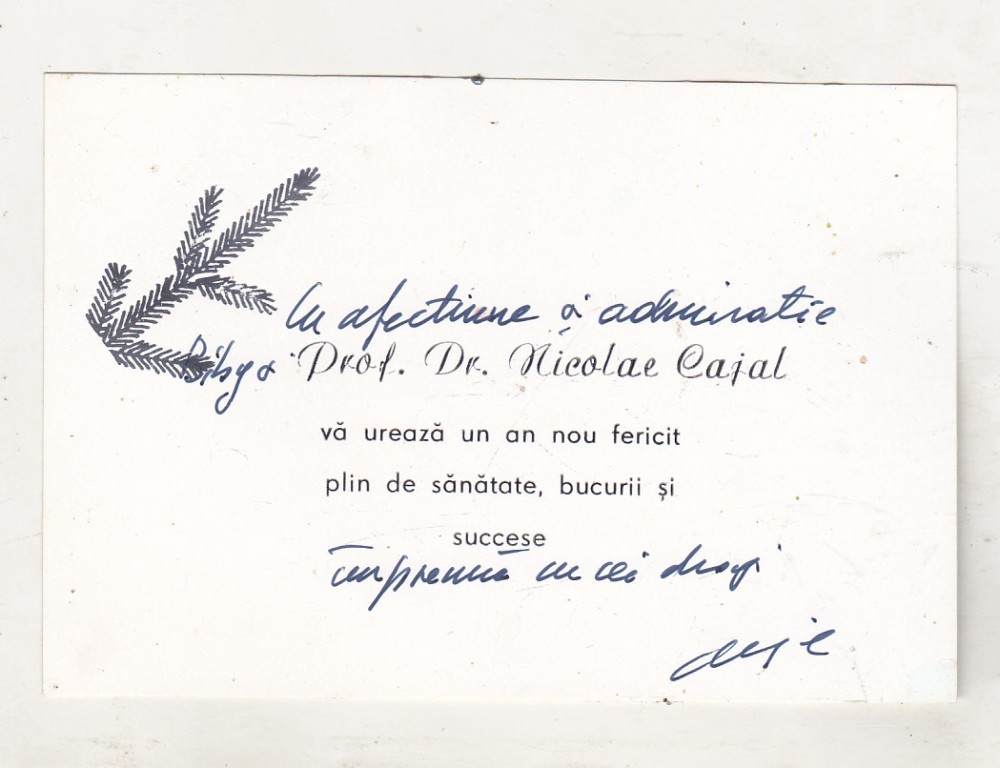 Cu afectiune și admiratie
Prof. Dr. Nicolae Cajal
vă urează un an nou fericit
plin de sănătate, bucurii și
succese
împreună cu cei dragi